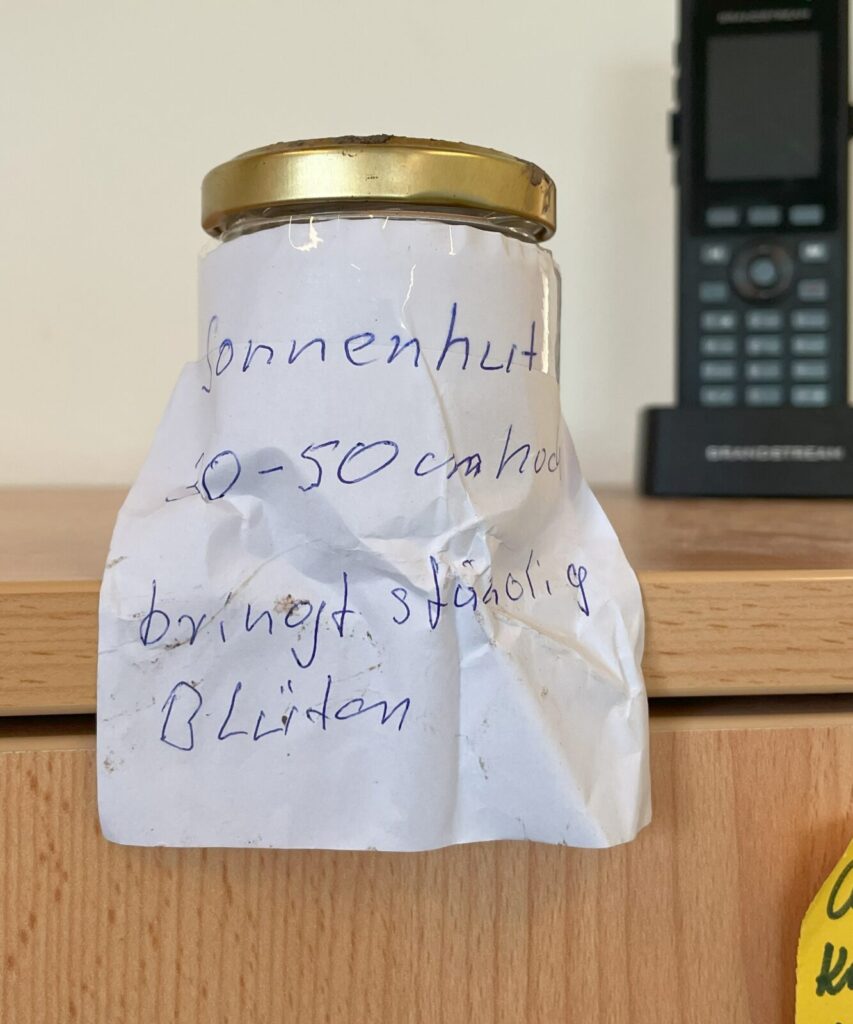 GRANDSTREAM
GRANDSTREAM
Sonnenhut
-50 cm hoch
bringt ständig
Blüten